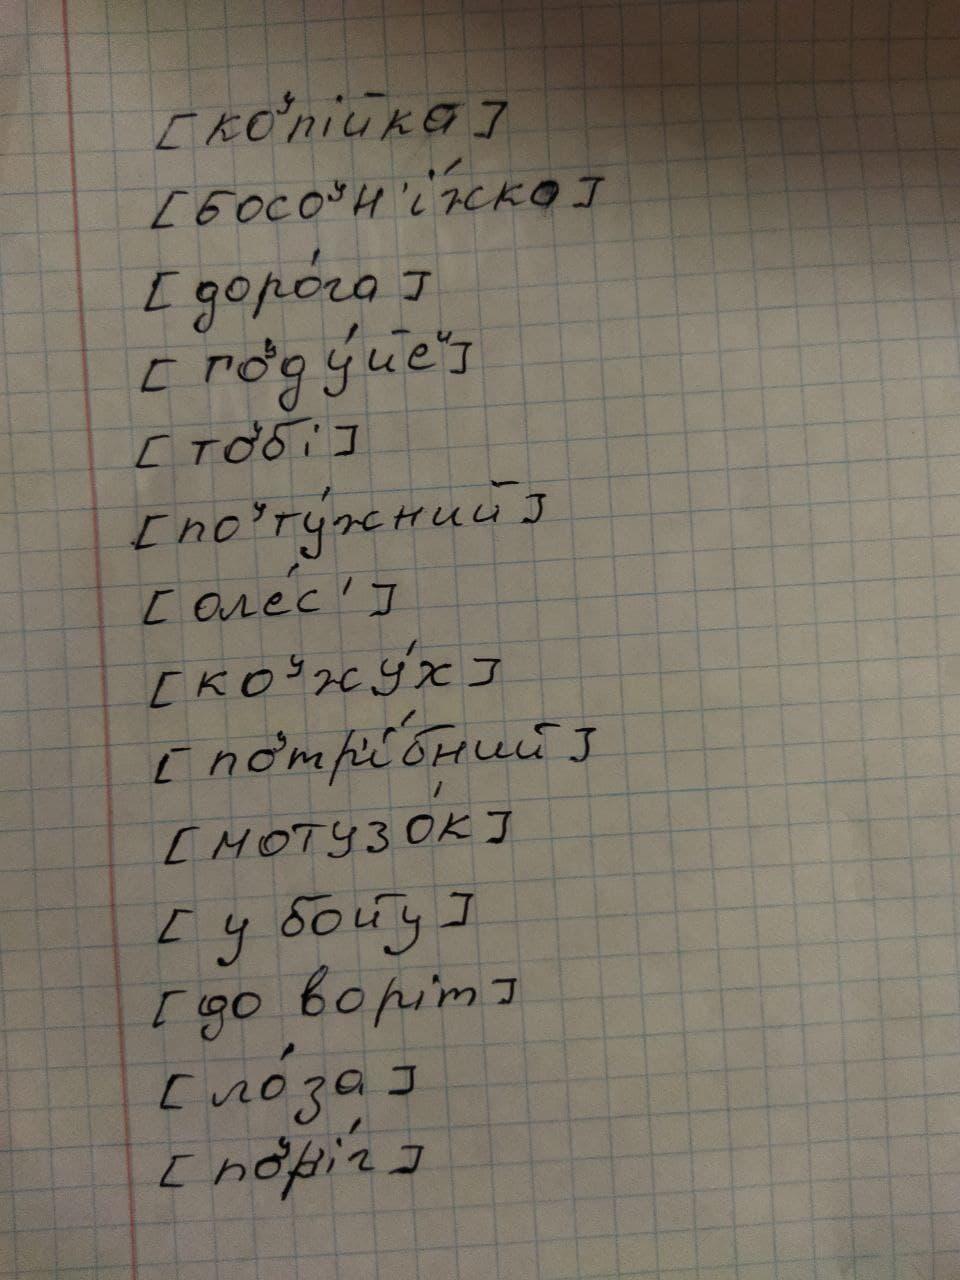 [коᵞпійка]
[босоᵞн'і́жко]
[доро́га]
[гоᵞду́йеᶸ]
[тоᵞбі]
[поᵞту́жний]
[оле́с']
[коᵞжу́х]
[поᵞтрі́бний]
[мотузо́к]
[у бойу]
[до воріт]
[ло́за]
[поᵞрі́г]